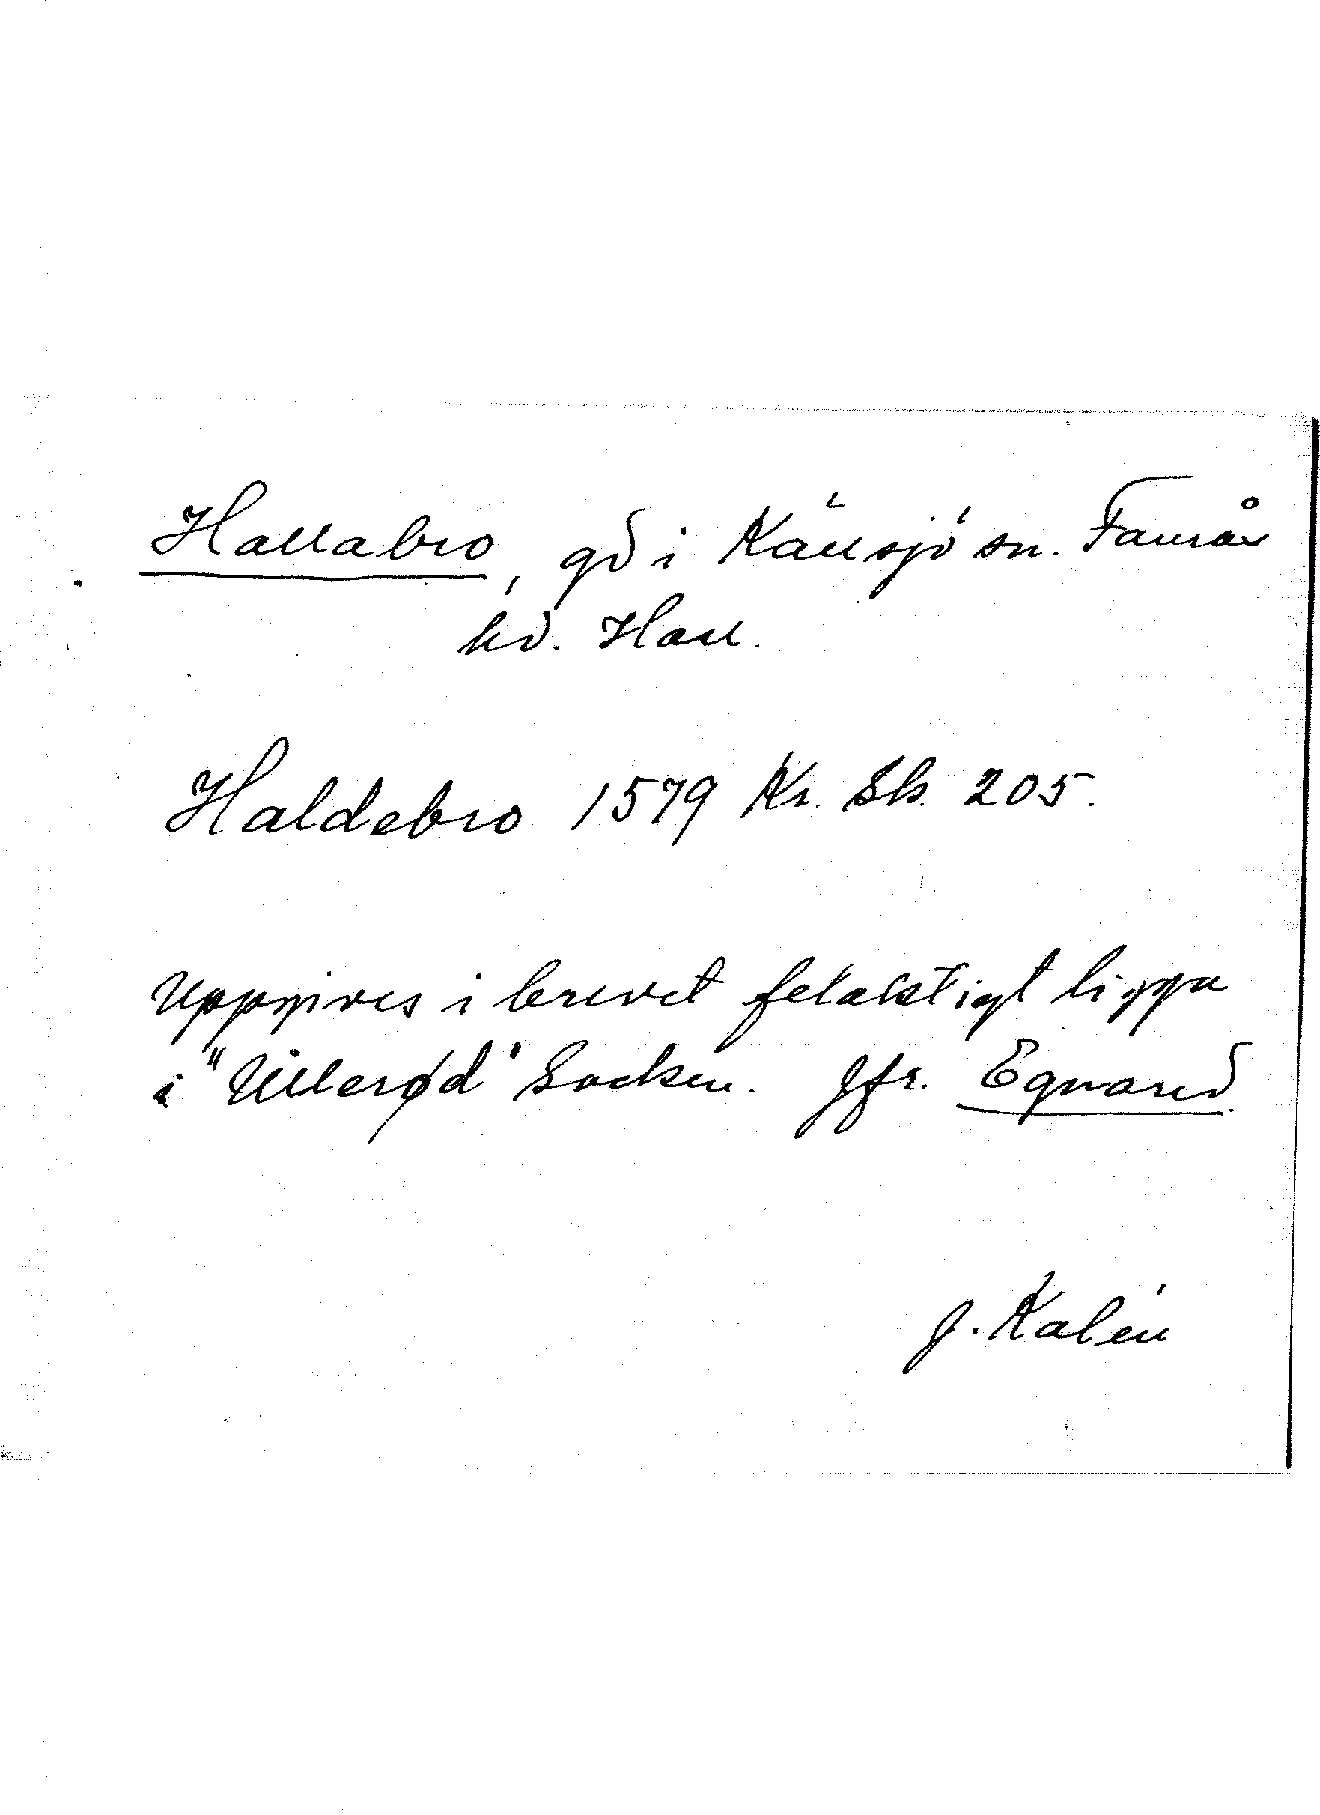 Hallabro, gd i Källsjö sn. Faurås
hd. Hall.
Haldebro 1579 Kr. Sk. 205.
Uppgives i brevet felaktigt ligga
i "Üllerød" Socken. Jfr. Egnared.
J. Kalén